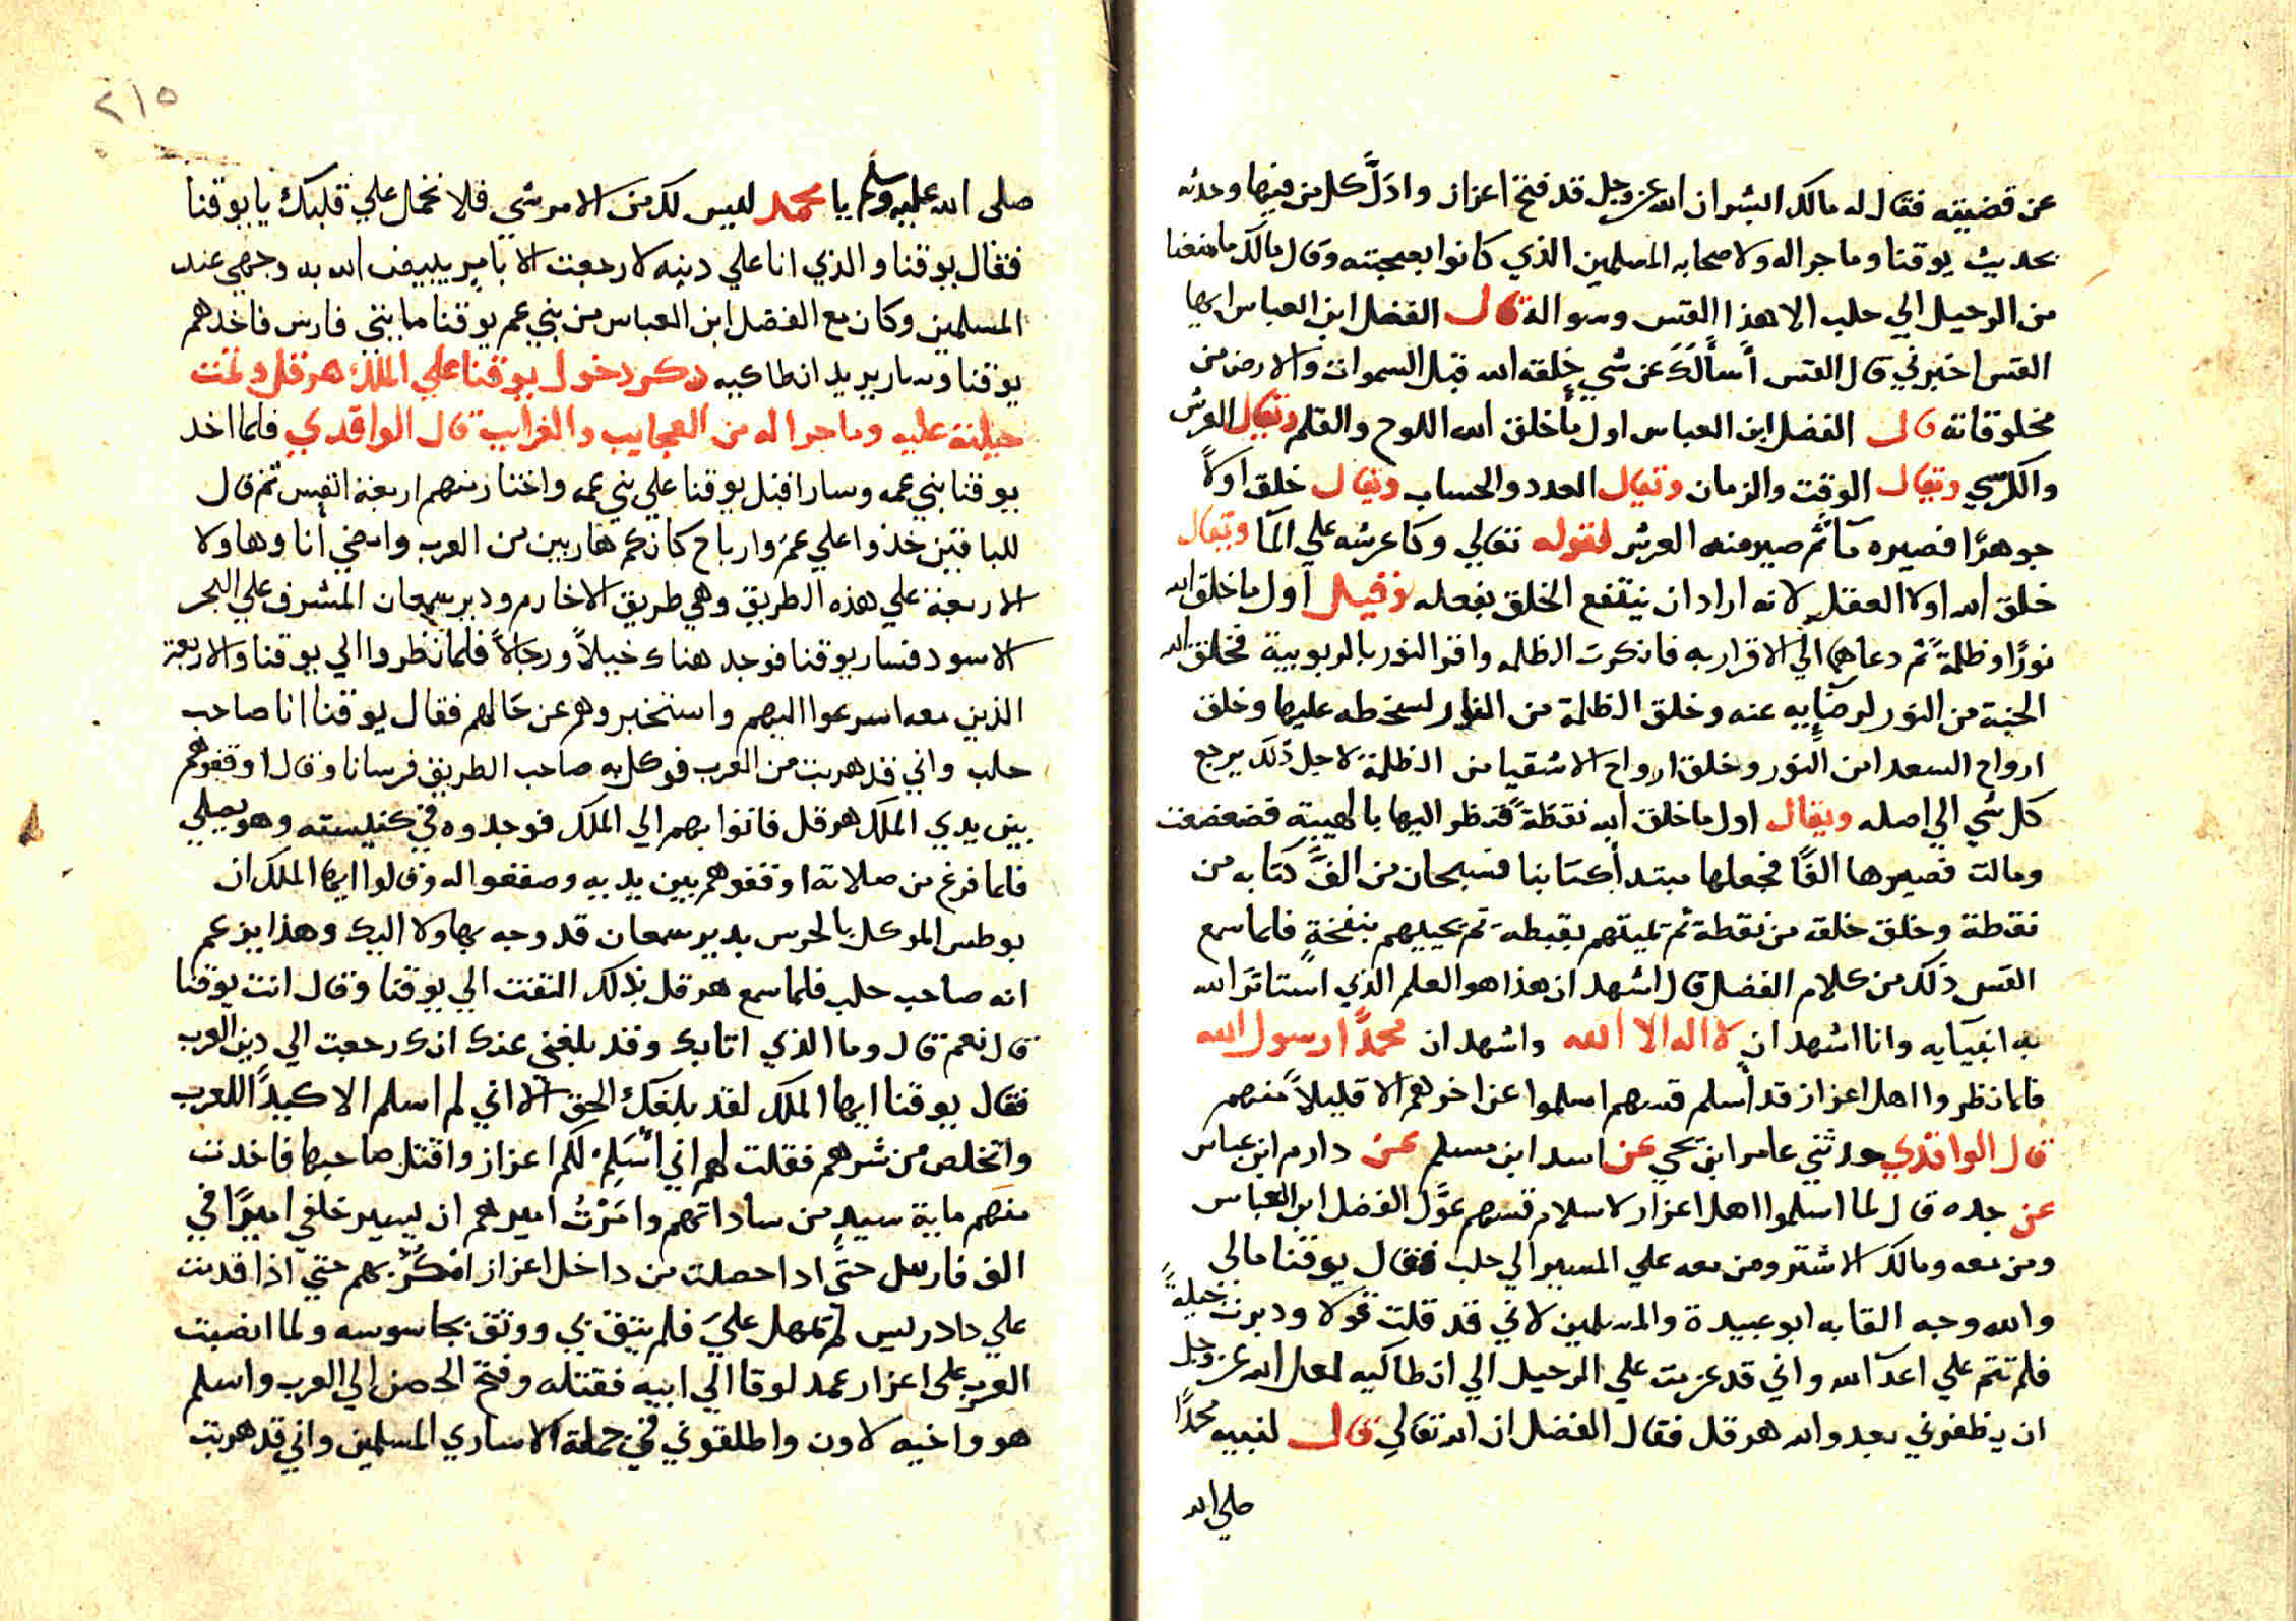 عن قضيته فقال له مالك ابشر ان الله عز وجل قد فتح اعزاز واذلَّ كل من فيها وحدثه
بحديث يوقنا وما جرا له ولاصحابه المسلمين الذي كانوا بصحبته وقال مالك ما منعنا
من الرحيل الي حلب الا هذا القس وسواله قال الفضل ابن العباس ايها
القس اخبرني قال القس أسألك عن شي خلقه الله قبل السموات والارض من
مخلوقاته قال الفضل ابن العباس اول ما خلق الله اللوح والقلم ويقال العرش
والكرسي ويقال الوقت والزمان ويقال العدد والحساب ويقال خلق اولاً
جوهرًا فصيره مآ ثم صير منه العرش لقوله تعالي وكا عرشه علي المآ ويقال
خلق الله اولا العقل لانه اراد ان ينتفع الخلق بفعله وقيل اول ما خلق الله
نورًا وظلمةً ثم دعاهما الي الاقرار به فانكرت الظلمه واقر النور بالربوبية فخلق الله
الجنة من النور لرضايه عنه وخلق الظلمة من النار لسخطه عليها وخلق
ارواح السعدا من النور وخلق ارواح الاشقيا من الظلمة لاجل ذلك يرجع
كل شي الي اصله ويقال اول ما خلق الله نقطة فنظر اليها بالهيبة فضعضعت
ومالت فصيرها الفًا فجعلها مبتدأ كتابنا فسبحان من الفَّ كتابه من
نقطة وخلق خلقه من نقطة ثم يميتهم بقبطه ثم يحييهم بنفخةٍ فلما سمع
القس ذلك من كلام الفضل قال اشهد ان هذا هو العلم الذي استاثر الله
به انبيآيه وانا اشهد ان لا اله الا الله واشهد ان محمدًا رسول الله
فلما نظروا اهل اعزاز قد أسلم قسهم اسلموا عن اخرهم الا قليلاً منهم
قال الواقدي حدثني عامر ابن يحي عن اسد ابن مسلم عن دارم ابن عباس
عن جده قال لما اسلموا اهل اعزاز لاسلام قسهم عوَّل الفضل ابن العباس
ومن معه ومالك الاشتر ومن معه علي المسير الي حلب فقال يوقنا مالي
والله وجه القا به ابو عبيدة والمسلمين لاني قد قلت قولا ودبرت حيلةً
فلم تتم علي اعدآ الله واني قد عزمت علي الرحيل الي انطاكيه لعل الله عز وجل
ان يظفرني بعدو الله هرقل فقال الفضل ان الله تعالي قال لنبيه محمدًا
صلي الله
٢١٥
صلى الله عليه وسلم يا محمد ليس لك من الامر شي فلا تحمل علي قلبك يا يوقنا
فقال يوقنا والذي انا علي دينه لا رجعت الا بامر يبيض الله به وجهي عند
المسلمين وكان مع الفضل ابن العباس من بني عم يوقنا مايتي فارس فاخدهم
يوقنا وسار يريد انطاكيه دكر دخول يوقنا علي الملك هرقل وتمت
حيلته عليه وما جرا له من العجايب والغرايب قال الواقدي فلما اخد
يوقنا بني عمه وسار اقبل يوقنا علي بني عمه واختار منهم اربعة انفس ثم قال
للباقين خذوا علي عمَ وارباح كانكم هاربين من العرب وامضي أنا وهاولا
الاربعة علي هذه الطريق وهي طريق الاخارم ودير سمعان المشرف علي البحر
الاسود فسار يوقنا فوجد هناك خيلاً ورجالاً فلما نظروا الي يوقنا والاربعة
الذين معه اسرعوا اليهم واستخبروهم عن حالهم فقال يوقنا انا صاحب
حلب واني قد هربت من العرب فوكل به صاحب الطريق فرسانا وقال اوقفوهم
بين يدي الملك هرقل فاتوا بهم الي الملك فوجدوه في كنيسته وهو يصلي
فلما فرغ من صلاته اوقفوهم بين يديه وصقفوا له وقالوا ايها الملك ان
بوطس الموكل بالحرس بدير سمعان قد وجه بهاولا اليك وهذا يزعم
انه صاحب حلب فلما سمع هرقل بذلك التفت الي يوقنا وقال انت يوقنا
قال نعم قال وما الذي اتا بك وقد بلغني عنك انك رجعت الي دين العرب
فقال يوقنا ايها الملك لقد بلغك الحق الا اني لم اسلم الا كيدًا للعرب
واتخلص من شرهم فقلت لهم اني أُسَلِمُ لكم اعزاز واقتل صاحبها فاخدت
منهم ماية سيد من ساداتهم وامَرْتُ اميرهم ان يسير خلفي اميرًا في
الف فارس حتى ادا حصلت من داخل اعزاز امكُرُ بهم حتي اذا قدمت
علي دادريس لم تمهل عليَ فلم يثق بي ووثق بجاسوسه ولما انصبت
العرب على اعزاز عمد لوقا الي ابيه فقتله وفتح الحصن الي العرب واسلم
هو واخيه لاون واطلقوني في جملة الاساري المسلمين واني قد هربت